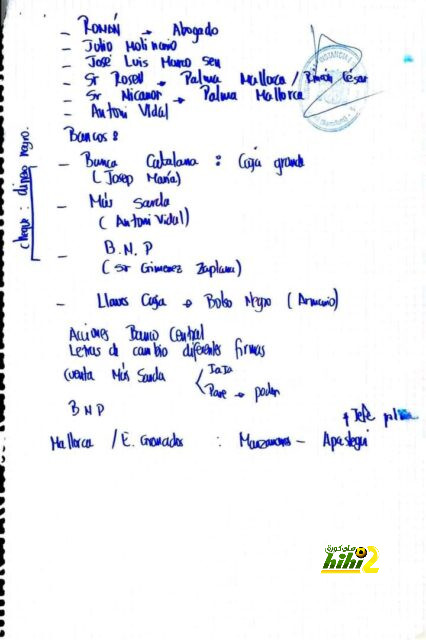 - ROMÁN → Abogado
- Julio Molinario
- José Luis Marco Seu
- Sr Rosell → Palma Mallorca / Román César
- Sr Nicanor → Palma Mallorca
- Antoni Vidal
Bancos:
- Banca Catalana : Caja grande
(Josep María)
- Más Sarda
(Antoni Vidal)
- B.N.P
(Sr Gimenez Zaplana)
- Llaves Caja → Bolso Negro (Armario)
cheque: dinero negro.
Acciones Banco Central
Letras de cambio diferentes firmas
cuenta Más Sarda
Pare → poder
BNP
+ Jefe
Mallorca / E. Granados : Manzanares - Apastegui
هاي كورة
hihi2